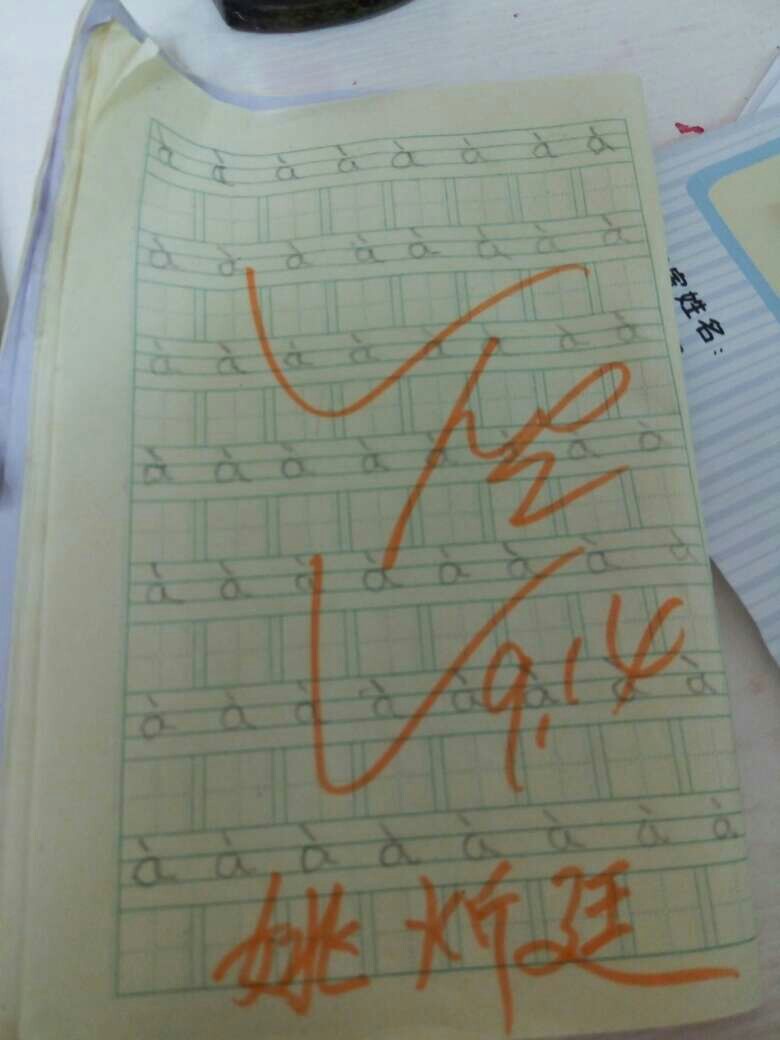 à à à à à à à à
à à à à à à à à
à à à à à à à à
à à à à à à à à
à à à à à à à à
à à à à à à à à
à à à à à à à à
9.14
姚炘廷
姓名：